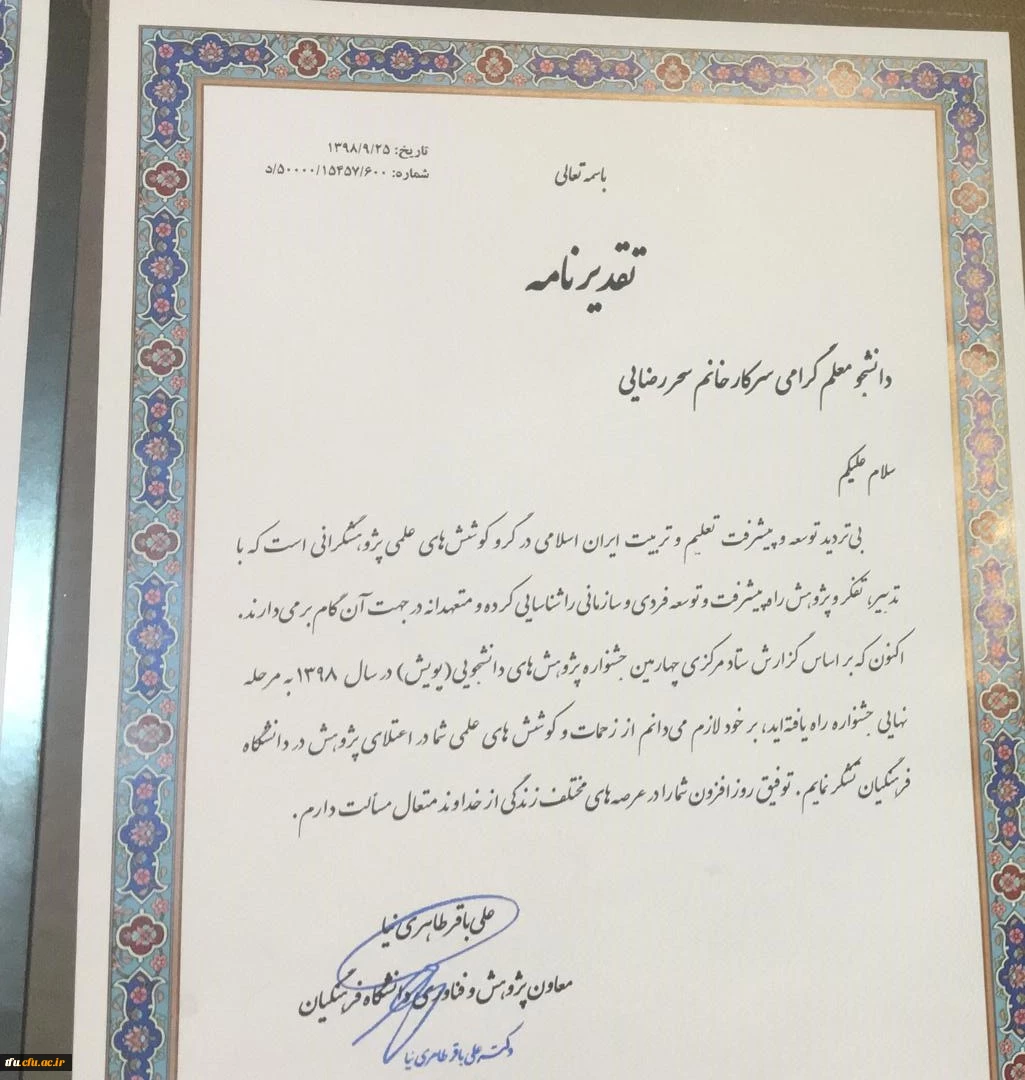 تاریخ: ۱۳۹۸/۹/۲۵
شماره: ۵۰۰۰۰/۱۵۴۵۷/۶۰۰/د
باسمه تعالی
تقدیرنامه
دانشجو معلم گرامی سرکار خانم سحر رضایی
سلام علیکم
بی‌تردید توسعه و پیشرفت تعلیم و تربیت ایران اسلامی در گرو کوشش‌های علمی پژوهشگرانی است که با
تدبیر، تفکر و پژوهش راه پیشرفت و توسعه فردی و سازمانی را شناسایی کرده و متعهدانه در جهت آن گام برمی‌دارند.
اکنون که بر اساس گزارش ستاد مرکزی چهارمین جشنواره پژوهش‌های دانشجویی (پویش) در سال ۱۳۹۸ به مرحله
نهایی جشنواره راه یافته‌اید، بر خود لازم می‌دانم از زحمات و کوشش های علمی شما در اعتلای پژوهش در دانشگاه
فرهنگیان تشکر نمایم. توفیق روزافزون شما را در عرصه‌های مختلف زندگی از خداوند متعال مسألت دارم.
علی باقر طاهری نیا
معاون پژوهش و فناوری دانشگاه فرهنگیان
دکتر علی باقر طاهری نیا
tfu.cfu.ac.ir